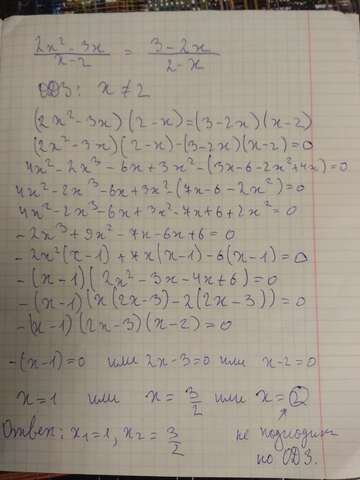 (2x² - 3x)/(x - 2) = (3 - 2x)/(2 - x)
ОДЗ: x ≠ 2
(2x² - 3x)(2 - x) = (3 - 2x)(x - 2)
(2x² - 3x)(2 - x) - (3 - 2x)(x - 2) = 0
4x² - 2x³ - 6x + 3x² - (3x - 6 - 2x² + 4x) = 0
4x² - 2x³ - 6x + 3x² - (7x - 6 - 2x²) = 0
4x² - 2x³ - 6x + 3x² - 7x + 6 + 2x² = 0
- 2x³ + 9x² - 7x - 6x + 6 = 0
- 2x²(x - 1) + 7x(x - 1) - 6(x - 1) = 0
- (x - 1)(2x² - 3x - 4x + 6) = 0
- (x - 1)(x(2x - 3) - 2(2x - 3)) = 0
- (x - 1)(2x - 3)(x - 2) = 0
- (x - 1) = 0 или 2x - 3 = 0 или x - 2 = 0
x = 1 или x = 3/2 или x = 2
Ответ: x₁ = 1, x₂ = 3/2
не подходит
по ОДЗ.